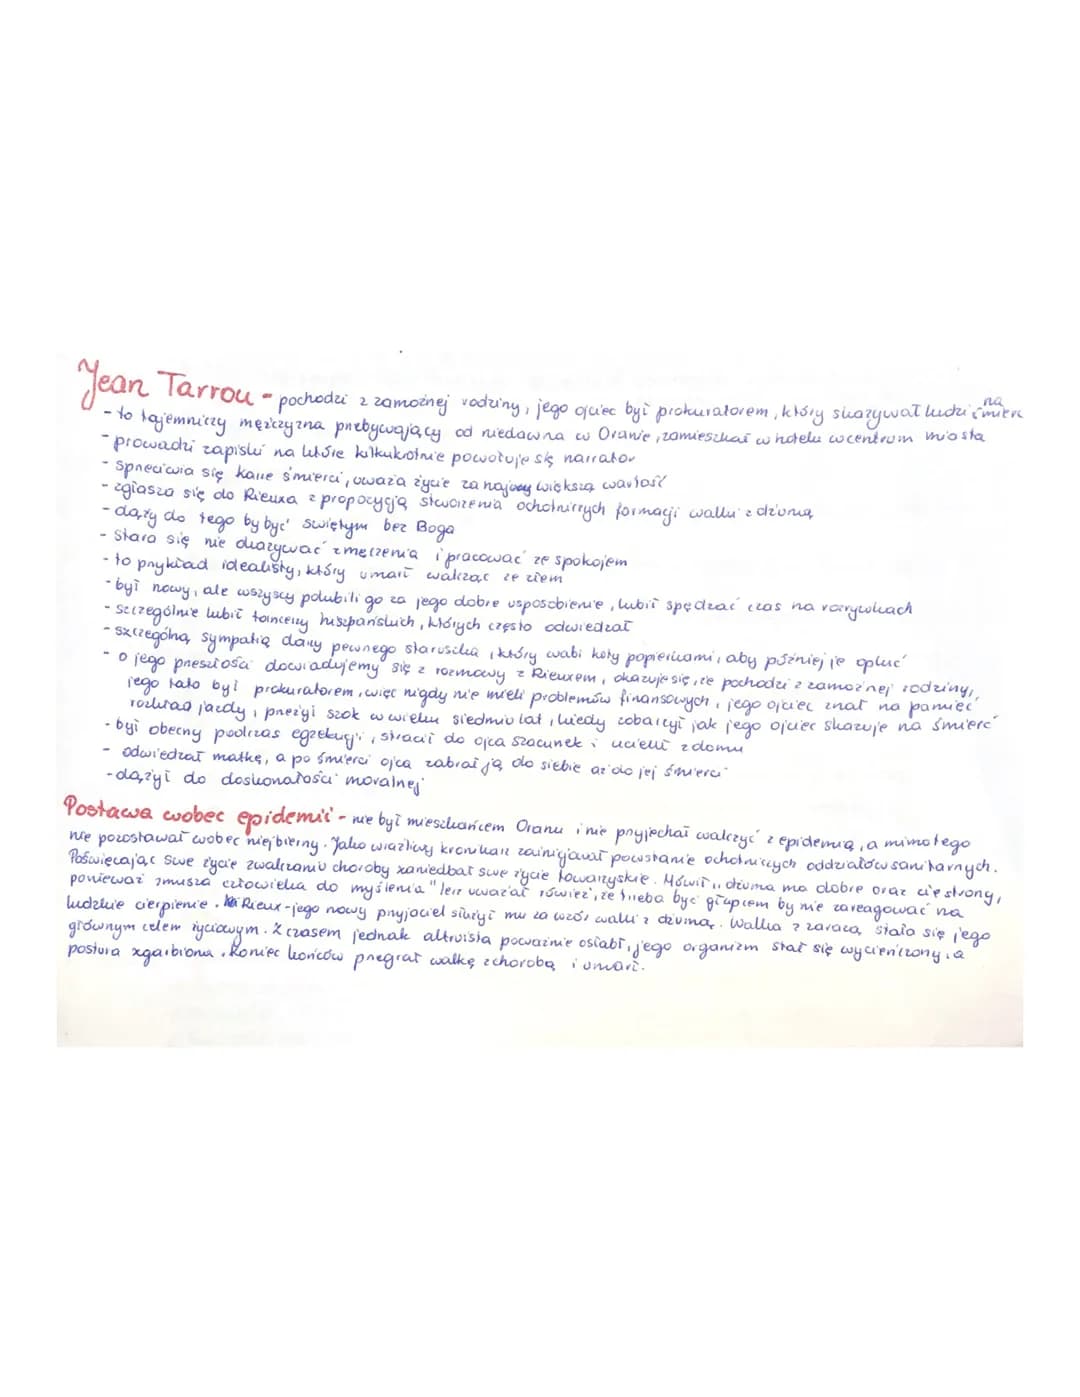 Jean Tarrou - pochodzi z zamożnej rodziny, jego ojciec był prokuratorem, który skazywał ludzi na śmierć
- to tajemniczy mężczyzna przebywający od niedawna w Oranie, zamieszkał w hotelu w centrum miasta
- prowadzi zapiski na które kilkukrotnie powołuje się narrator
- sprzeciwia się karze śmierci, uważa życie za największą wartość
- zgłasza się do Rieuxa z propozycją stworzenia ochotniczych formacji walki z dżumą
- dąży do tego by być świętym bez Boga
- stara się nie okazywać zmęczenia i pracować ze spokojem
- to przykład idealisty, który umarł walcząc ze złem
- był nowy, ale wszyscy polubili go za jego dobre usposobienie, lubił spędzać czas na rozrywkach
- szczególnie lubił tancerzy hiszpańskich, których często odwiedzał
- szczególną sympatią darzy pewnego staruszka, który wabi koty papierkami, aby później je opluć
- o jego przeszłości dowiadujemy się z rozmowy z Rieuxem, okazuje się, że pochodzi z zamożnej rodziny,
jego tato był prokuratorem, więc nigdy nie mieli problemów finansowych, jego ojciec znał na pamięć
rozkład jazdy, przeżył szok w wieku siedmiu lat, kiedy zobaczył jak jego ojciec skazuje na śmierć
- był obecny podczas egzekucji, stracił do ojca szacunek i uciekł z domu
- odwiedzał matkę, a po śmierci ojca zabrał ją do siebie aż do jej śmierci
- dążył do doskonałości moralnej
Postawa wobec epidemii - nie był mieszkańcem Oranu i nie przyjechał walczyć z epidemią, a mimo tego
nie pozostawał wobec niej bierny. Jako wrażliwy kronikarz zainicjował powstanie ochotniczych oddziałów sanitarnych.
Poświęcając swe życie zwalczaniu choroby zaniedbał swe życie towarzyskie. Mówił "dżuma ma dobre oraz złe strony,
ponieważ zmusza człowieka do myślenia" lecz uważał również, że trzeba być głupcem by nie zareagować na
ludzkie cierpienie. Rieux - jego nowy przyjaciel służył mu za wzór walki z dżumą. Walka z zarazą, stała się jego
głównym celem życiowym. Z czasem jednak altruista poważnie osłabł, jego organizm stał się wycieńczony, a
postura zgarbiona. Koniec końców przegrał walkę z chorobą i umarł.